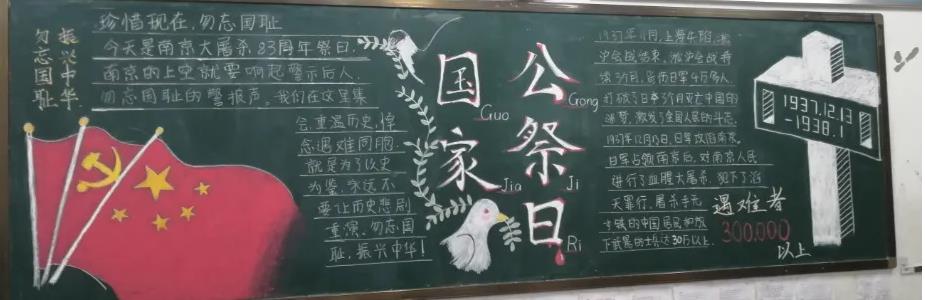 振兴中华
勿忘国耻
珍惜现在，勿忘国耻
今天是南京大屠杀83周年祭日，
南京的上空就要响起警示后人，
勿忘国耻的警报声。我们在这里集
会，重温历史，悼
念遇难同胞，
就是为了以史
为鉴，永远不
要让历史悲剧
重演，勿忘国
耻，振兴中华！
国家
Guo
Jia
公祭日
Gong
Ji
Ri
1937年11月，上海年陷，淞
沪会战结束，淞沪会战持
续3个月，毙伤日军4万多人，
打破了日本3个月灭亡中国的
迷梦，激发了全国人民的斗志。
1937年12月13日，日军攻陷南京。
日军占领南京后，对南京人民
进行了血腥大屠杀，犯下了滔
天罪行，屠杀手无
寸铁的中国居民和放
下武器的士兵达30万以上。
1937.12.13
-1938.1
遇难者
300,000
以上